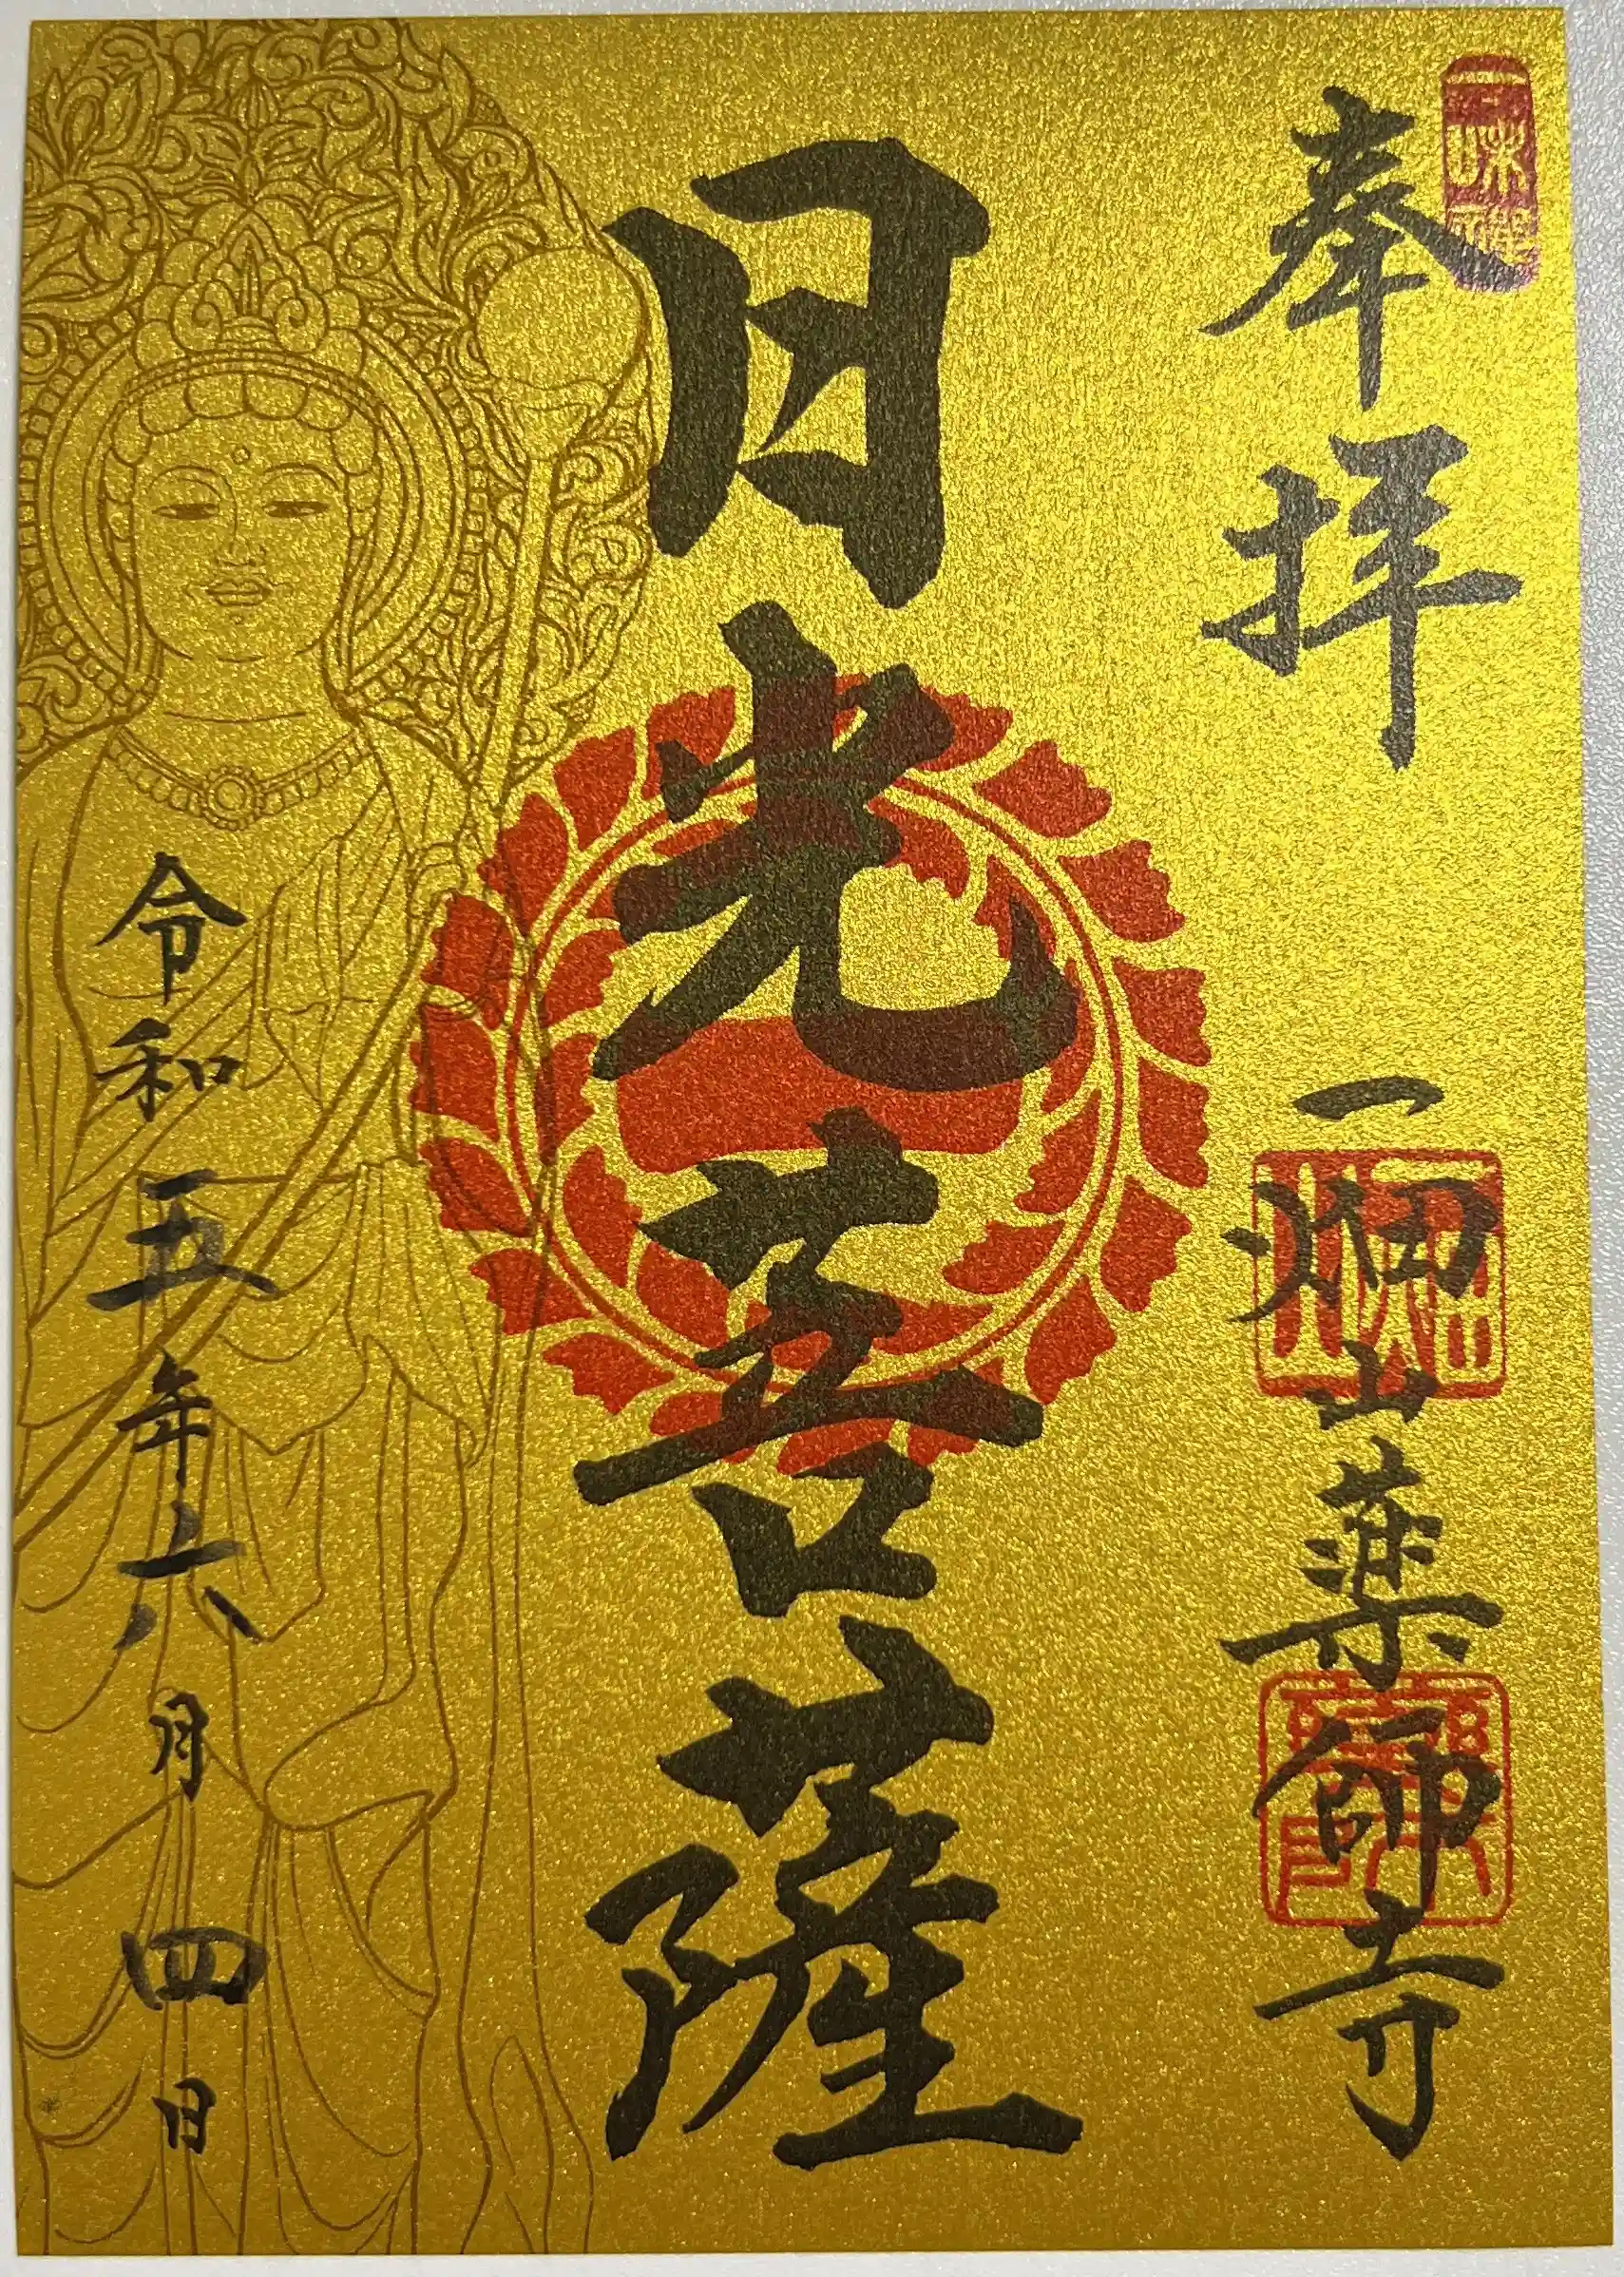 奉拝
一畑山薬師寺
日光菩薩
令和五年六月四日